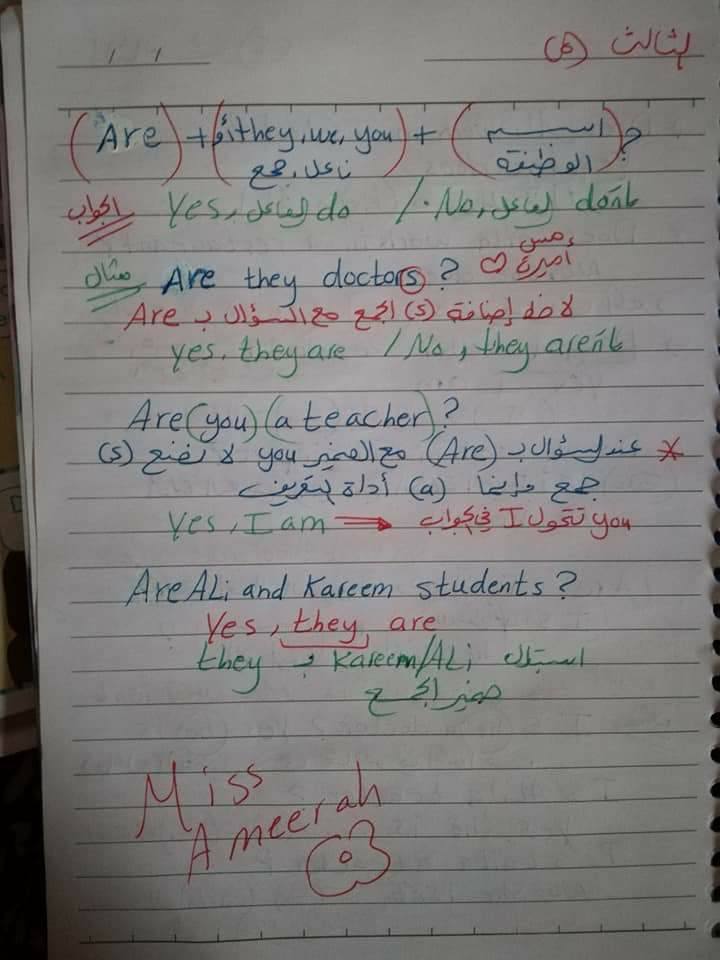 الثالث (ك)
/ /
(Are) + (they, we, you أو) + (اسم)?
فاعل جمع الوظيفة
الجواب Yes, الفاعل do / No, الفاعل don't
مثال Are they doctors? ♡ مس أميرة
لاحظ إضافة (s) الجمع مع السؤال بـ Are
yes, they are / No, they aren't
Are (you) (a teacher)?
* عند السؤال بـ (Are) مع الضمير you لا نضع (s)
جمع وإنما (a) أداة
Yes, I am → you تتحول I في الجواب
Are ALi and Kareem students?
Yes, they are
استبدلت Kareem/ALi بـ they
ضمير الجمع
Miss
Ameerah